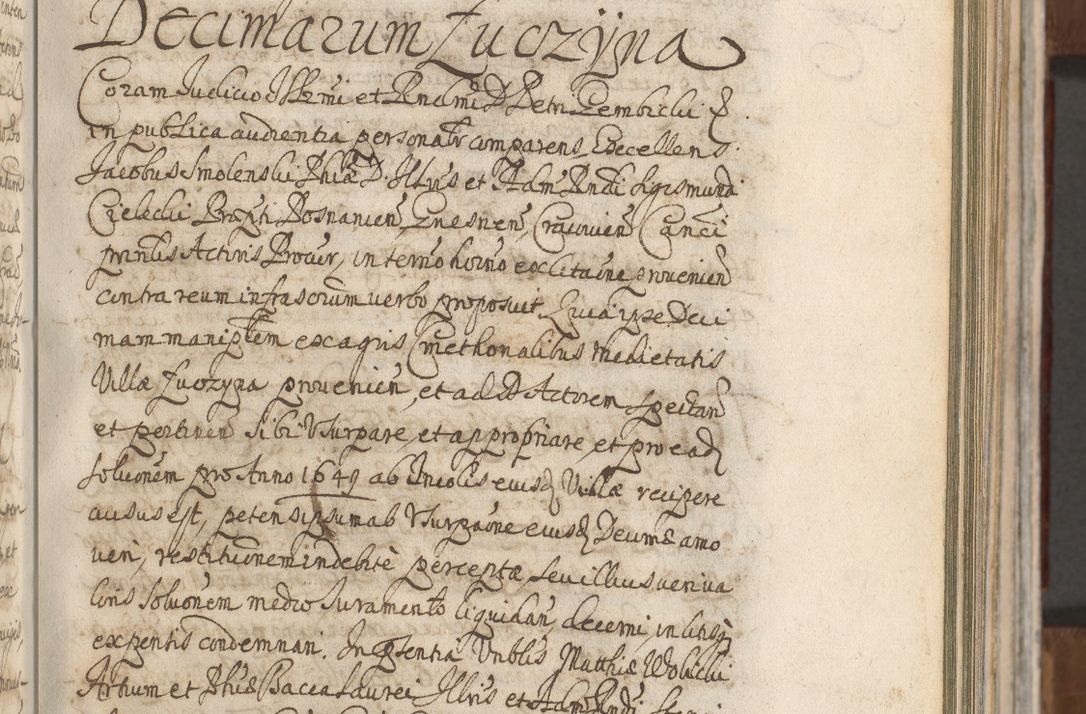 Decimarum Łuczyna
Coram Judicio Illrmi et Rndmi D Petri Gembicki E
in publica audientia personalr comparens Excellens
Jacobus Smolenski Phiæ D. Illris et Adm Rndi Sigismundi
Czielecki Præpti Posnanien, Gnesnen, Cracovien Canci
prinlis Actoris Procur, in termo hoino ex citaone provenien
contra reum infrascriptum verbo proposuit, Quia ipse Deci
mam maniplem ex agris Cmethonalibus medietatis
Villæ Łuczyna provenien, et ad D Actorem spectan
et pertinen sibi Usurpare, et appropriare et pro eadq
soluonem pro Anno 1649 ab Incolis eiusdq Villæ recipere
ausus est, petens ipsum ab Usurpaone eiusdq Decimæ amo
veri, restitutionem indebitè perceptæ, seu illius veri va
loris soluonem medio Juramento liquidan, decerni, in litisq
expensis condemnari. In psentia Unblis Matthiæ Wolicki
Artium et Phiæ Baccalaurei Illris et Adm Rndi